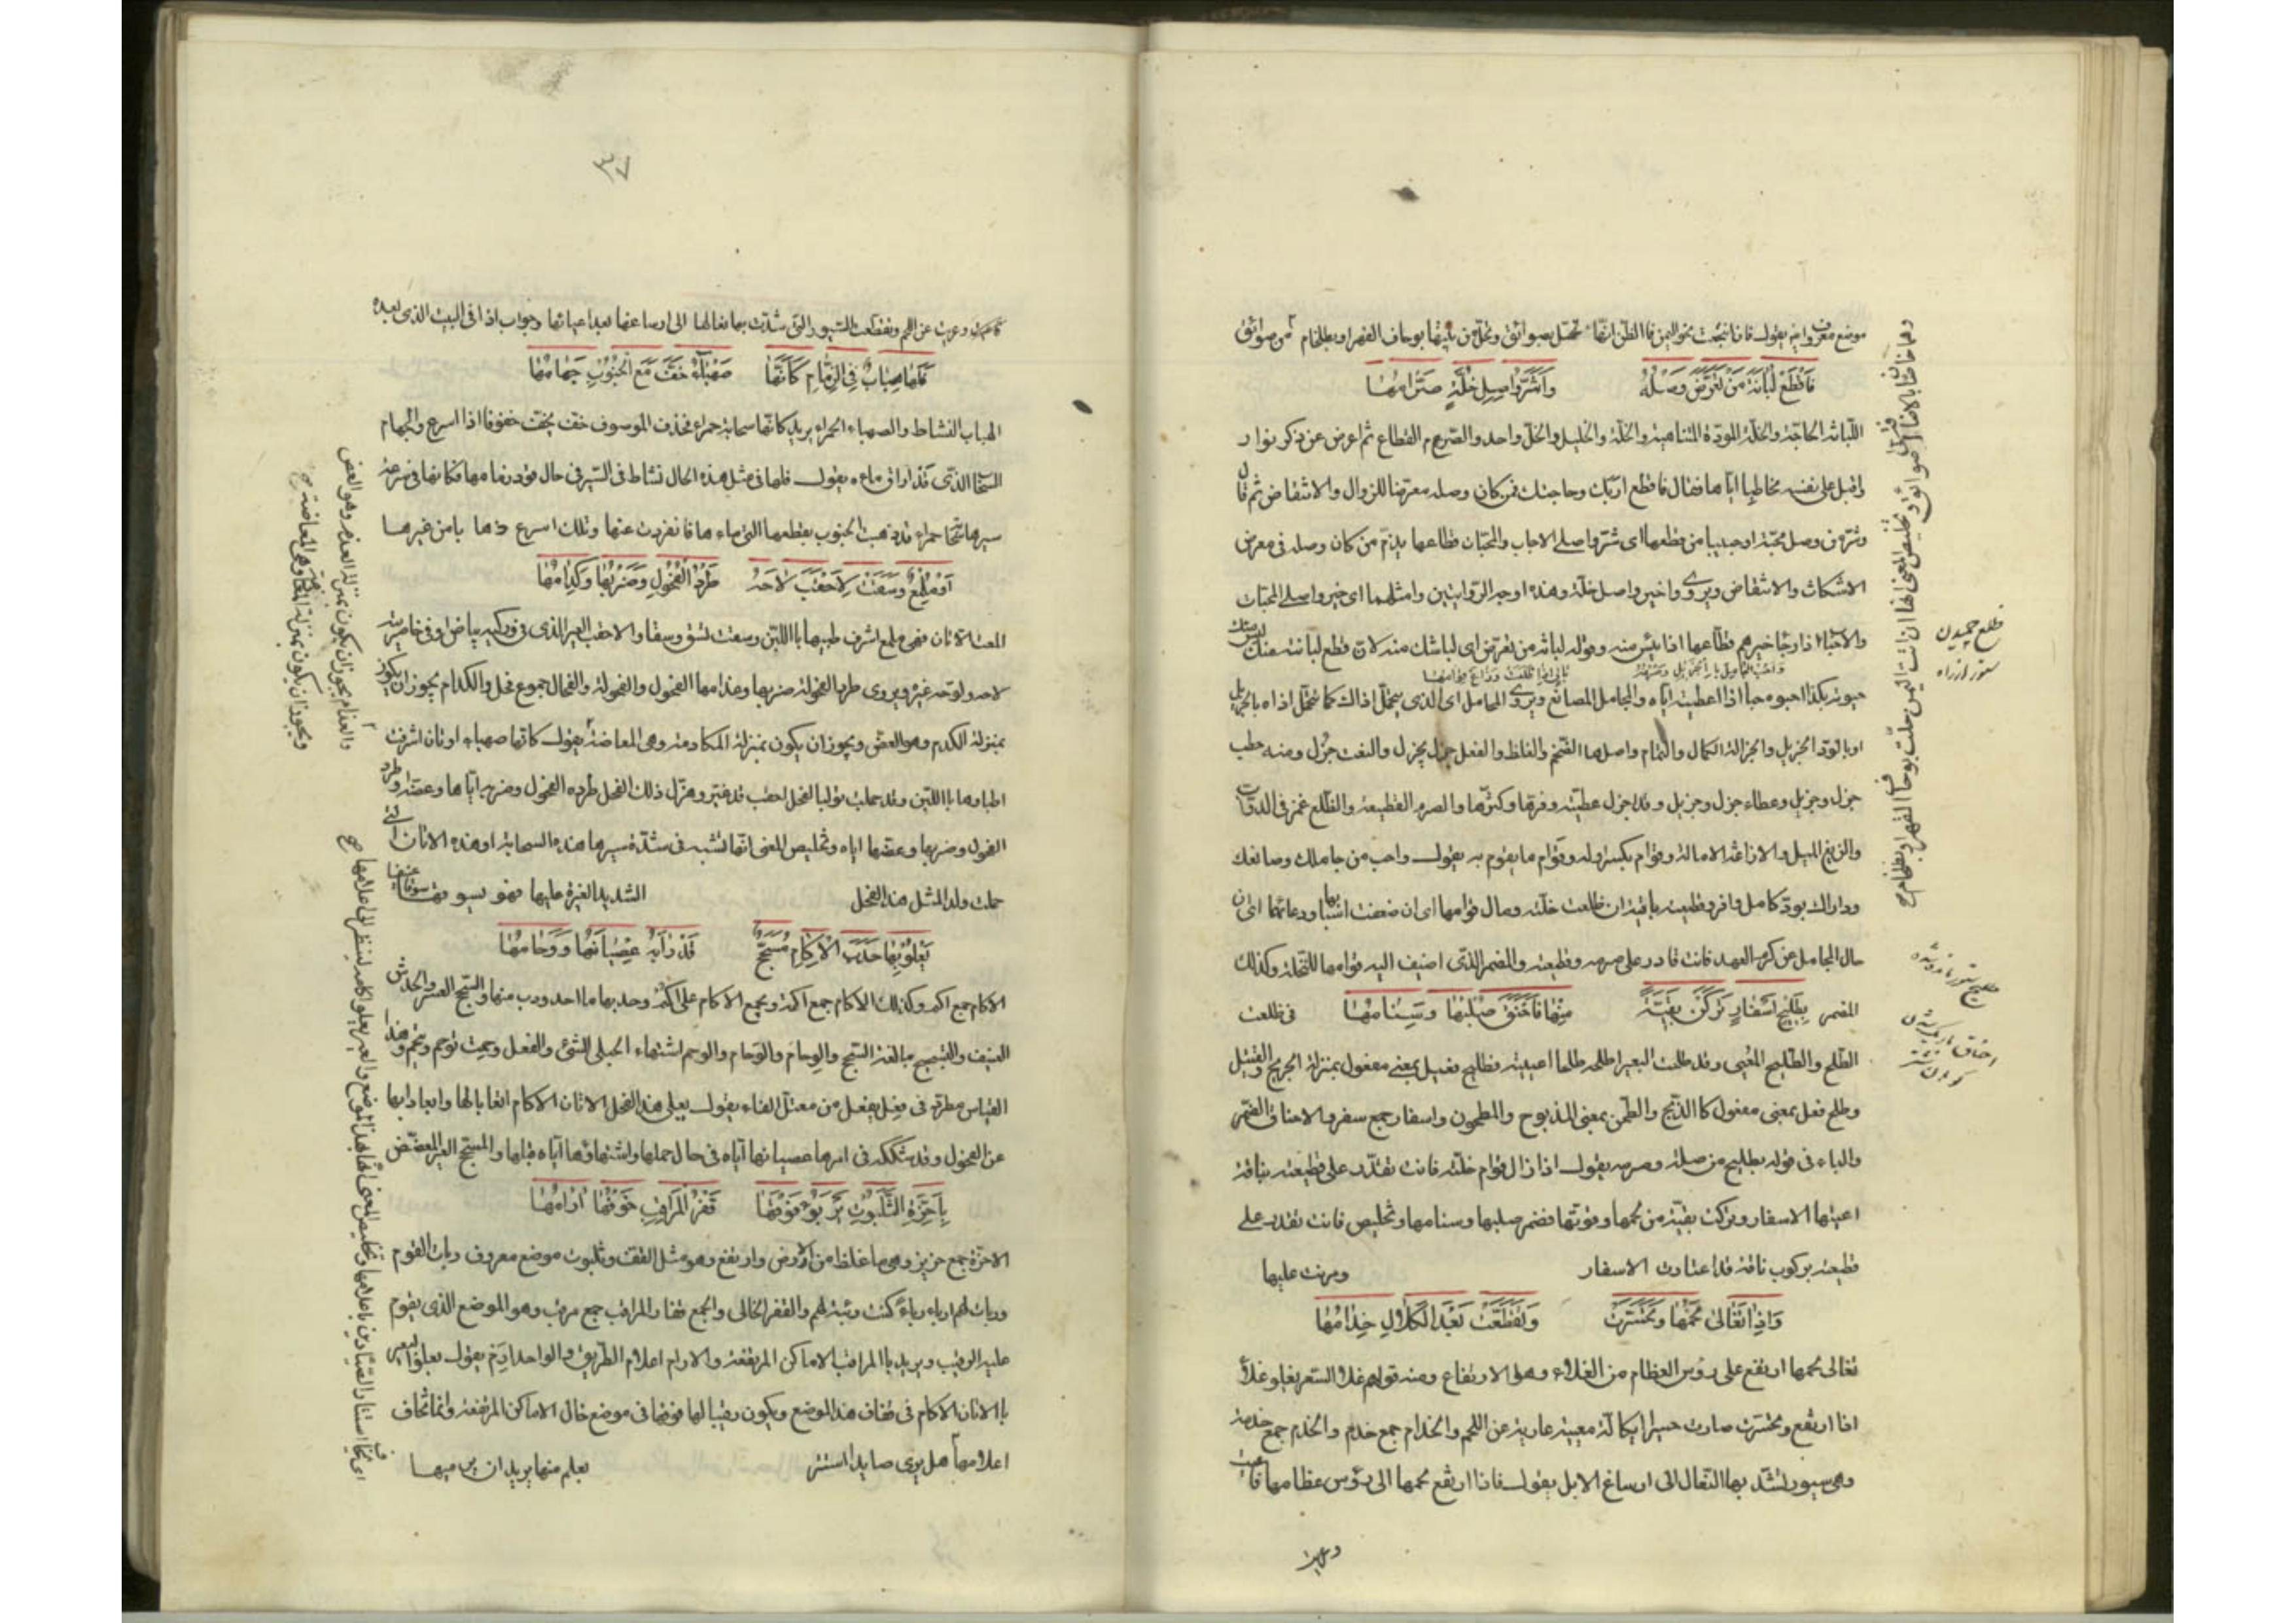 موضع معروف ايم يقول فان انتجعت نحو اليمن فالظن انها تحل بصوائق وتحل من بينها بوحاف القهر او بطلخام من صوائق
فَاقْطَعْ لُبَانَةَ مَنْ تَعَرَّضَ وَصْلُهُ وَلَشَرُّ وَاصِلِ خُلَّةٍ صَرَّامُهَا
اللبانة الحاجة والخلة المودة المتناهية والخلة والخليل والخل واحد والصرم القطاع ثم اعرض عن ذكر نوار
واقبل على نفسه مخاطبا اياها فقال فاقطع اربك وحاجتك ممن كان وصله معرضا للزوال والانتقاض ثم قال
وشر من وصل محبة او حبيبا من قطعها اى شر واصلى الاحباب والمحبات قطاعها يذم من كان وصله فى معرض
الانتكاث والانتقاض ويروى وخير واصل خلة وهذه اوجه الروايتين وامثلهما اى خير واصلى المحبات
والاحباء اذا رجا خيرهم قطاعها اذا يئس منه وقوله لبانة من تعرض اى لبانتك منه لان قطع لبانته منك ليس منك
وَاحْبُ المُجَامِلَ بِالْجَزِيلِ وَصَرْمُهُ بَاقٍ اِذَا ظَلَعَتْ وَزَاغَ قِوَامُهَا
حبوته بكذا احبوه حباء اذا اعطيته اياه والمجامل المصانع ويروى المحامل اى الذى يتحمل اذاك كما تتحمل اذاه بالجزيل
او بالود الجزيل والجزالة الكمال والتمام واصلها الضخم والغلظ والفعل جزل يجزل والنعت جزل ومنه حطب
جزل وجزيل وعطاء جزل وجزيل وقد اجزل عطيته وفرها وكثرها والصرم القطيعة والظلع غمز فى الدواب
والزيغ الميل والازاغة الامالة وقوام بكسر اوله وقوام ما يقوم به يقول واحب من جاملك وصانعك
وداراك بود كامل وافر وقطيعته باقية ان ظلعت خلته ومال قوامها اى ان ضعفت اسبابها ودعائمها اى ان
حال المجامل عن كرم العهد فانت قادر على صرمه وقطيعته والمضمر الذى اضيف اليه قوامها للخلة وكذلك
المضمر فى ظلعت
بِطَلِيحِ اَسْفَارٍ تَرَكْنَ بَقِيَّةً مِنْهَا فَاَحْنَقَ صُلْبُهَا وَسَنَامُهَا
الطلح والطليح المعيى وقد طلحت البعير اطلحه طلحا اعييته فطليح فعيل بمعنى مفعول بمنزلة الجريح والقتيل
وطلح فعل بمعنى مفعول كالذبح والطحن بمعنى المذبوح والمطحون واسفار جمع سفر والاحناق الضمر
والباء فى قوله بطليح من صلة وصرمه يقول اذا زال قوام خلته فانت تقدر على قطيعته بناقة
اعيتها الاسفار وتركت بقية من لحمها وقوتها فضمر صلبها وسنامها وتلخيص فانت تقدر على
قطيعته بركوب ناقة قد اعتادت الاسفار ومرنت عليها
وَاِذَا تَغَالَى لَحْمُهَا وَتَحَسَّرَتْ وَتَقَطَّعَتْ بَعْدَ الْكَلَالِ خِدَامُهَا
تغالى لحمها ارتفع على رؤس العظام من الغلاء وهو الارتفاع ومنه قولهم غلا السعر يغلو غلاء
اذا ارتفع وتحسرت صارت حسيرا كالة معيية عارية عن اللحم والخدام جمع خدم والخدم جمع خدمة
وهى سيور تشد بها النعال الى ارساغ الابل يقول فاذا ارتفع لحمها الى رؤس عظامها فاعيت
وعريت
قلع چيدن
٣٧
فاعيت وعريت عن اللحم وتقطعت السيور التى شدت بها نعالها الى ارساغها بعد اعيائها وجواب اذا فى البيت الذى بعده
فَلَهَا هِبَابٌ فِى الزِّمَامِ كَاَنَّهَا صَهْبَاءُ خَفَّ مَعَ الْجَنُوبِ جَهَامُهَا
الهباب النشاط والصهباء الحمراء يريد كانها سحابة حمراء فحذف الموصوف خف يخف خفوفا اذا اسرع والجهام
السحاب الذى قد اراق ماءه يقول فلها فى مثل هذه الحال نشاط فى السير فى حال قود زمامها فكانها فى سرعة
سيرها سحابة حمراء قد ذهبت الجنوب بقطعها التى ماءها فانفردت عنها وتلك اسرع ذهابا من غيرها
اَوْ مُلْمِعٌ وَسَقَتْ لِاَحْقَبَ لَاحَهُ طَرْدُ الْفُحُولِ وَضَرْبُهَا وَكِدَامُهَا
المعت الاتان فهى ملمع اشرف طبيها باللبن وسقت تسق وسقا والاحقب العير الذى فى وركيه بياض او فى خاصرتيه
لاحه ولوحه غيره ويروى طرد الفحولة ضربها وعذامها الفحول والفحولة والفحال جموع فحل والكدام يجوز ان يكون
بمنزلة الكدم وهو العض ويجوز ان يكون بمنزلة المكادمة وهى المعاضة يقول كانها صهباء او اتان اشرفت
اطباؤها باللبن وقد حملت تولبا لفحل احقب قد غير وهزل ذلك الفحل طرده الفحول وضربه اياها وعضه وطرد
الفحول وضربها وعضها اياه وتلخيص المعنى انها تشبه فى شدة سيرها هذه السحابة او هذه الاتان التى
حملت ولدا لمثل هذا الفحل الشديد الغيرة عليها فهو يسوقها سوقا عنيفا
يَعْلُو بِهَا حَدَبَ الْاِكَامِ مُسَحَّجٌ قَدْ رَابَهُ عِصْيَانُهَا وَوِحَامُهَا
الاكام جمع اكم وكذلك الآكام جمع اكمة ويجمع الاكام على اكم وحدبها ما احدودب منها والسحج القشر والخدش
العنيف والتسحيج مبالغة السحج والوحام والوحام والوحم اشتهاء الحبلى الشئ والفعل وحمت توحم وتحم وهذا
القياس مطرد فى فعل يفعل من معتل الفاء يقول يعلى هذا الفحل الاتان الاكام اتعابا لها وابعادا بها
عن الفحول وقد شككه فى امرها عصيانها اياه فى حال حملها واشتهاؤها اياه قبلها والمسحج العير المعضض
بِاَحِزَّةِ الثَّلَبُوتِ يَرْبَأُ فَوْقَهَا قَفْرَ الْمَرَاقِبِ خَوْفُهَا اٰرَامُهَا
الاحزة جمع حزيز وهو ما غلظ من الارض وارتفع وهو مثل القف وثلبوت موضع معروف ربات القوم
وربات لهم اربا ربأ كنت ربيئة لهم والقفر الخالى والجمع قفار والمراقب جمع مرقب وهو الموضع الذى يقوم
عليه الرقيب ويريد بالمراقب الاماكن المرتفعة والارام اعلام الطريق والواحد ارم يقول يعلو العير
بالاتان الاكام فى قفاف هذا الموضع ويكون رقيبا لها فوقها فى موضع خال الاماكن المرتفعة وانما تخاف
اعلامها هل يرى صايدا استتر بعلم منها يريد ان يرميها
والعذام يجوز ان يكون بمنزلة العذم وهو العض
ويجوز ان يكون بمنزلة المعاذمة وهى المعاضة